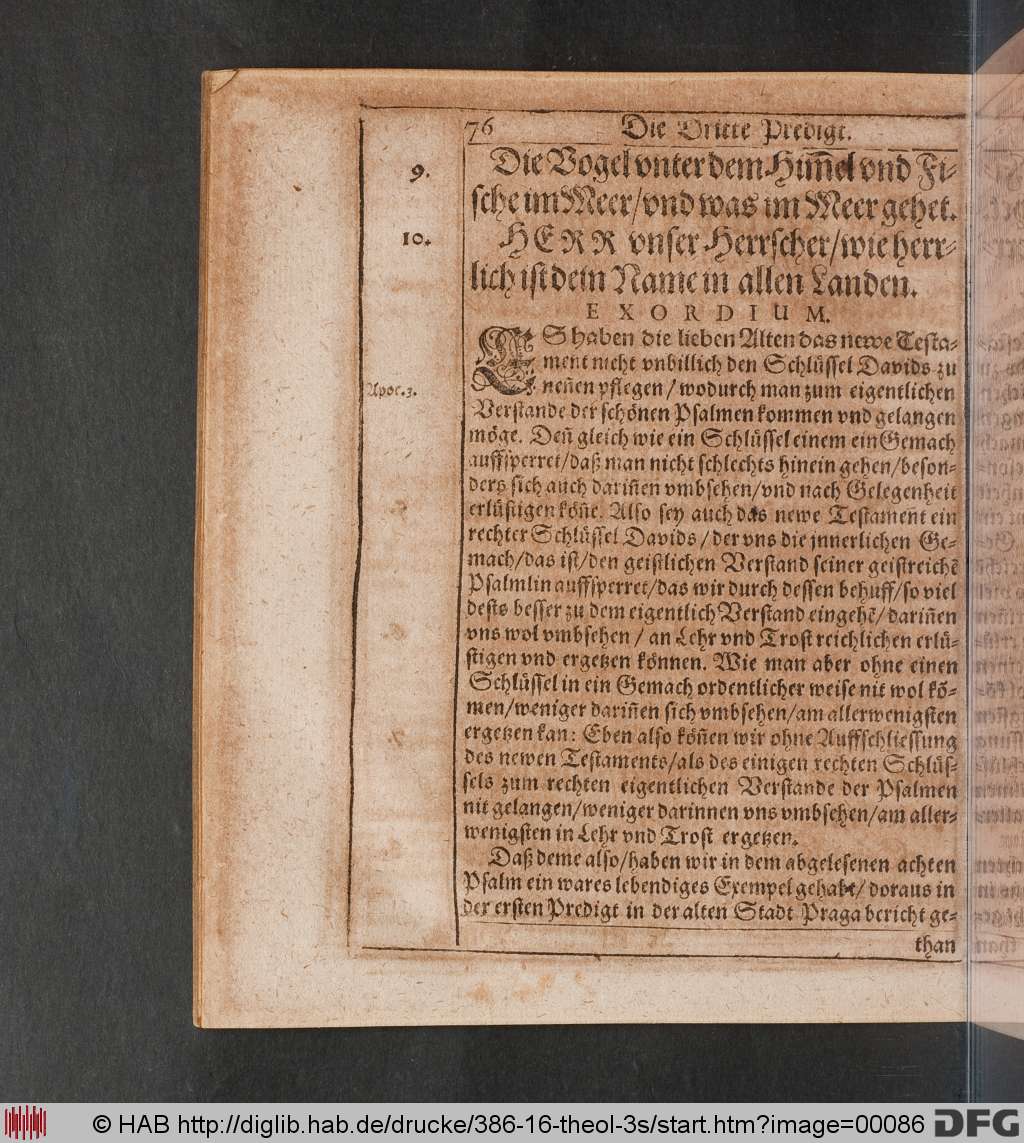 76 Die Dritte Predigt.
9. Die Vogel vnter dem Him̃el vnd Fi-
sche im Meer/vnd was im Meer gehet.
10. HERR vnser Herrscher/wie herr-
lich ist dein Name in allen Landen.
EXORDIUM.
ES haben die lieben Alten das newe Testa-
ment nicht vnbillich den Schlüssel Davids zu
neñen pflegen/ wodurch man zum eigentlichen
Apoc. 3.
Verstande der schönen Psalmen kommen vnd gelangen
möge. Deñ gleich wie ein Schlüssel einem ein Gemach
auffsperret/daß man nicht schlechts hinein gehen/beson-
ders sich auch dariñen vmbsehen/vnd nach Gelegenheit
erlüstigen köñe. Also sey auch das newe Testament ein
rechter Schlüssel Davids/der vns die jnnerlichen Ge-
mach/das ist/den geistlichen Verstand seiner geistreichẽ
Psalmlin auffsperret/das wir durch dessen behuff/so viel
desto besser zu dem eigentlich Verstand eingehẽ/dariñen
vns wol vmbsehen/ an Lehr vnd Trost reichlichen erlü-
stigen vnd ergetzen können. Wie man aber ohne einen
Schlüssel in ein Gemach ordentlicher weise nit wol kö-
men/weniger dariñen sich vmbsehen/am allerwenigsten
ergetzen kan: Eben also köñen wir ohne Auffschliessung
des newen Testaments/als des einigen rechten Schlüs-
sels zum rechten eigentlichen Verstande der Psalmen
nit gelangen/weniger darinnen vns vmbsehen/am aller-
wenigsten in Lehr vnd Trost ergetzen.
Daß deme also/haben wir in dem abgelesenen achten
Psalm ein wares lebendiges Exempel gehabt/doraus in
der ersten Predigt in der alten Stadt Praga bericht ge-
than
© HAB http://diglib.hab.de/drucke/386-16-theol-3s/start.htm?image=00086
DFG